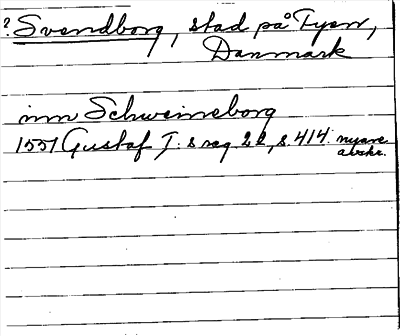 ? Svendborg, stad på Fyen,
Danmark
inn Schweineborg
1551 Gustaf I:s reg 22, s. 414. nyare
avskr.